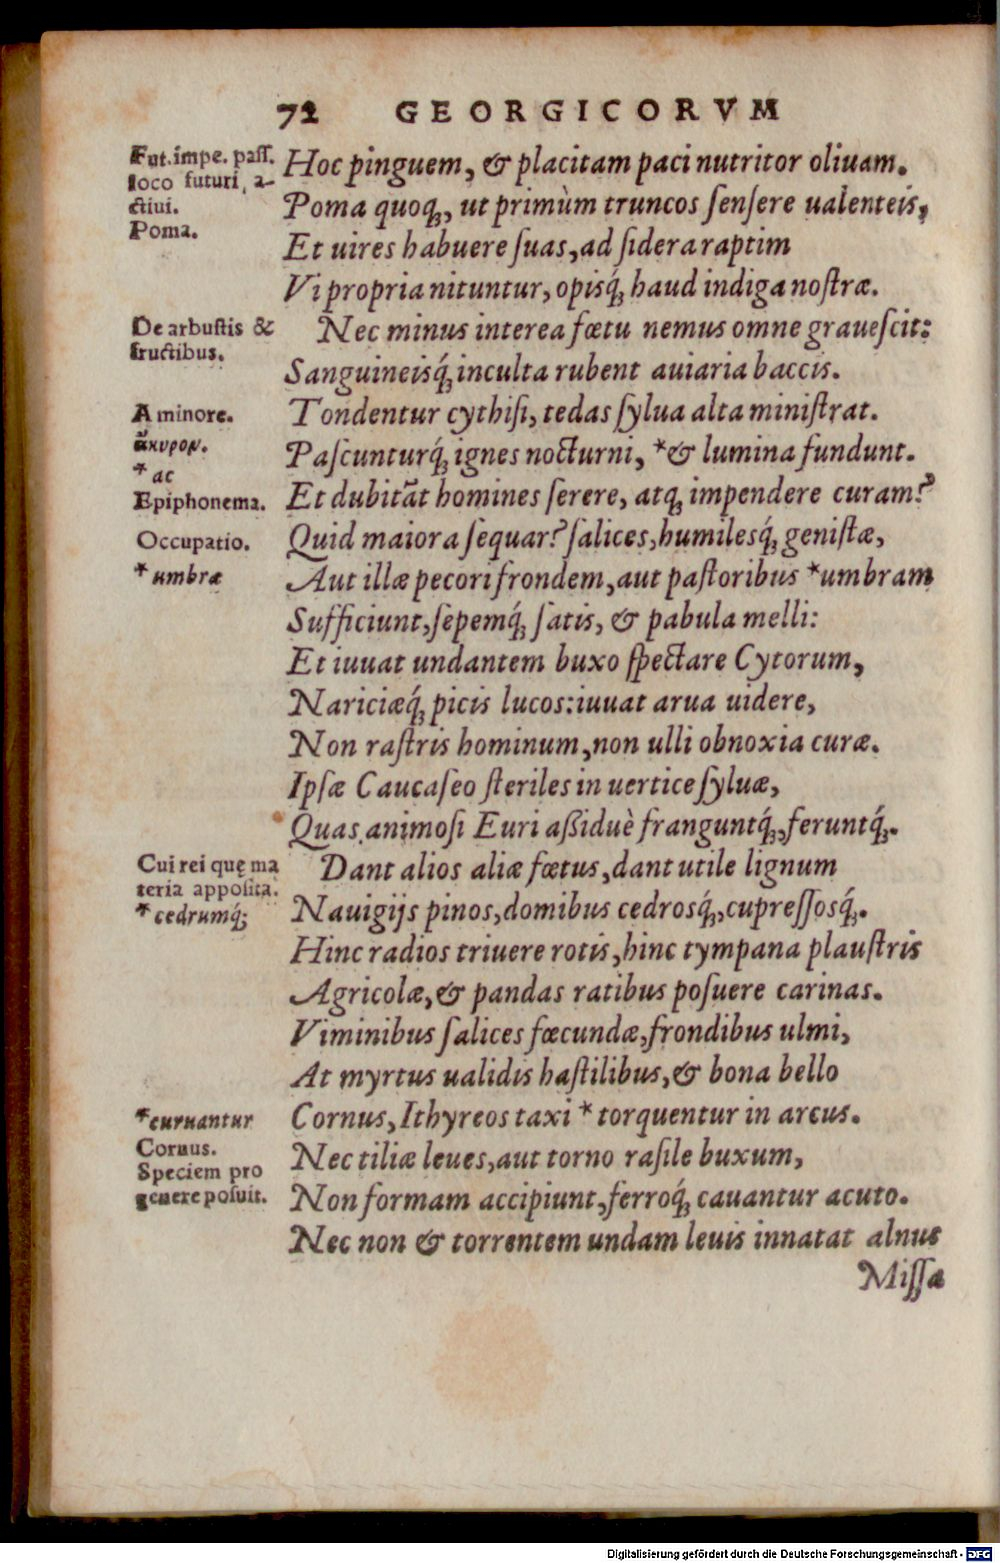 72 GEORGICORVM
Fut. impe. paſſ.
loco futuri, a-
ctiui.
Poma.
Hoc pinguem, & placitam paci nutritor oliuam.
Poma quoq́;, ut primùm truncos ſenſere ualenteis,
Et uires habuere ſuas, ad ſidera raptim
Vi propria nituntur, opisq́; haud indiga noſtræ.
De arbuſtis &
fructibus.
Nec minus interea fœtu nemus omne graueſcit:
Sanguineisq́; inculta rubent auiaria baccis.
A minore.
ἄκυρον.
* ac
Epiphonema.
Tondentur cythiſi, tedas ſylua alta miniſtrat.
Paſcunturq́; ignes nocturni, *& lumina fundunt.
Et dubitāt homines ſerere, atq; impendere curam?
Occupatio.
* umbræ
Quid maiora ſequar? ſalices, humilesq́; geniſtæ,
Aut illæ pecori frondem, aut paſtoribus *umbram
Sufficiunt, ſepemq́; ſatis, & pabula melli:
Et iuuat undantem buxo ſpectare Cytorum,
Nariciæq́; picis lucos: iuuat arua uidere,
Non raſtris hominum, non ulli obnoxia curæ.
Ipſæ Caucaſeo ſteriles in uertice ſyluæ,
Quas animoſi Euri aßiduè franguntq́;, feruntq́;.
Cui rei quę ma
teria appoſita.
* cedrumq́;
Dant alios aliæ fœtus, dant utile lignum
Nauigijs pinos, domibus cedrosq́;, cupreſſosq́;.
Hinc radios triuere rotis, hinc tympana plauſtris
Agricolæ, & pandas ratibus poſuere carinas.
Viminibus ſalices fœcundæ, frondibus ulmi,
At myrtus ualidis haſtilibus, & bona bello
* curuantur
Cornus.
Speciem pro
genere poſuit.
Cornus, Ithyreos taxi * torquentur in arcus.
Nec tiliæ leues, aut torno raſile buxum,
Non formam accipiunt, ferroq́; cauantur acuto.
Nec non & torrentem undam leuis innatat alnus
Miſſa
Digitalisierung gefördert durch die Deutsche Forschungsgemeinschaft - DFG